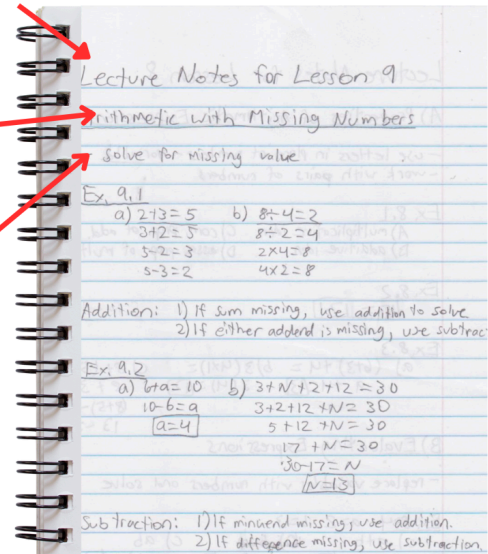 Lecture Notes for Lesson 9
Arithmetic with Missing Numbers
- solve for missing value
Ex. 9.1
a) 2+3=5   b) 8÷4=2
3+2=5   8÷2=4
5-2=3   2×4=8
5-3=2   4×2=8
Addition: 1) If sum missing, use addition to solve
2) If either addend is missing, use subtrac
Ex. 9.2
a) 6+a=10   b) 3+N+2+12=30
10-6=a   3+2+12+N=30
a=4   5+12+N=30
17+N=30
30-17=N
N=13
Subtraction: 1) If minuend missing, use addition.
2) If difference missing, use subtraction.